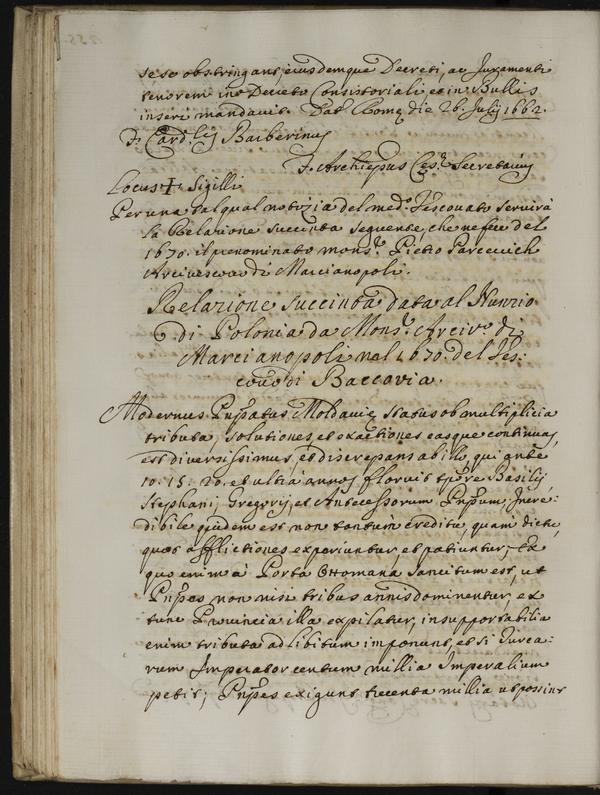 se se obstringant, eiusdemque Decreti, ac Juramenti
tenorem in Decreto Consistoriali, et in Bullis
inseri mandavit. Dat. Romę die 26. Julij 1662.
Card.lis Barberinus
F. Archiepus Ces.r Secretarius
Locus + Sigilli
Per una tal qual notizia del med.o Vescovato servirà
la Relazione succinta seguente, che ne fece del
1670. il prenominato Mons.r Pietro Parcevich
Arcivescovo di Marcianopoli.
Relazione succinta data al Nunzio
di Polonia da Mons.r Arciv.o di
Marcianopoli nel 1670. del Ves:
cov.o di Baccovia.
Modernus Pnpatus Moldavię status ob multiplicia
tributa, solutiones, et exactiones easque continuas,
est diversissimus, et discrepans ab illo, qui ante
10. 15. 20. et ultra annos floruit tpre Basilij
Stephani, Gregorij, et Antecessorum Pnpum; Incre:
dibile quidem est non tantum creditu, quam dictu,
quas afflictiones experiuntur, et patiuntur; Ex
quo enim à Porta Ottomana sancitum est, ut
Pnpes non nisi tribus annis dominentur, ex
tunc Provincia illa expilatur, insupportabilia
enim tributa ad libitum imponunt, et si Turca:
rum Imperator centum millia Imperalium
petit; Pnpes exigunt trecenta millia ut possint